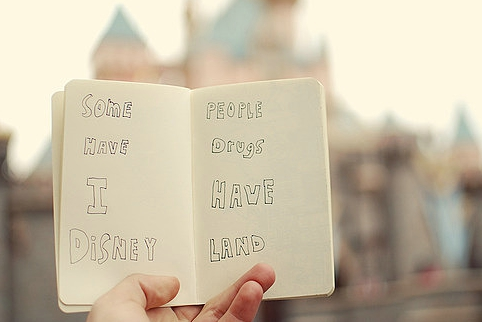 SOME PEOPLE
HAVE DRUGS
I HAVE
DISNEY LAND